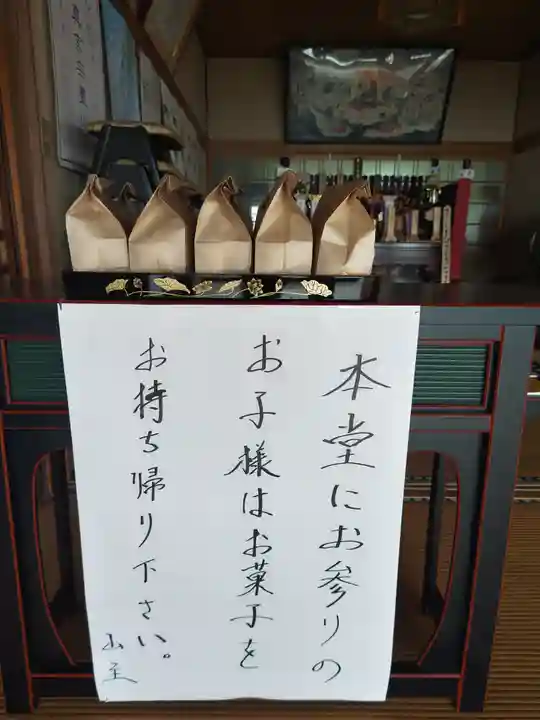 本堂にお参りの
お子様はお菓子を
お持ち帰り下さい。
山主